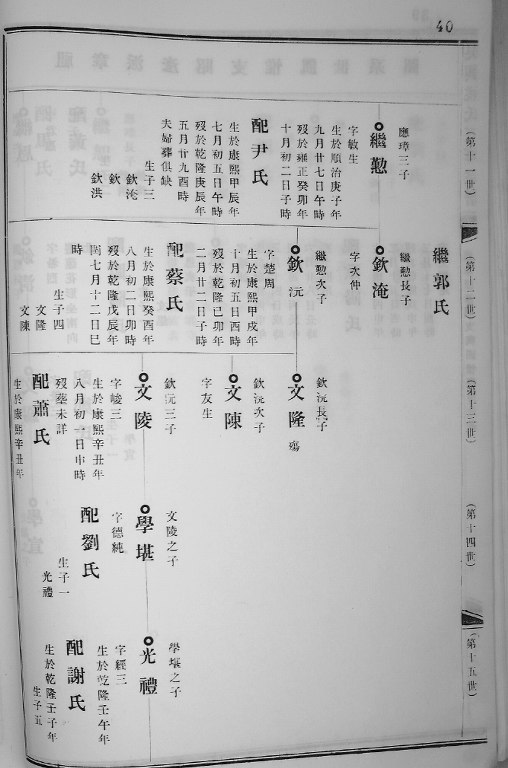 40
(第十一世)
應璋三子
繼懃
字敏生
生於順治庚子年
九月廿七日午時
歿於雍正癸卯年
十月初二日子時
配尹氏
生於康熙甲辰年
七月初五日午時
歿於乾隆庚辰年
五月廿九酉時
夫婦葬俱缺
生子三
欽淹
欽
欽洪
(第十二世)
繼郭氏
繼懃長子
欽淹
字次仲
繼懃次子
欽沅
字楚周
生於康熙甲戌年
十月初五日酉時
歿於乾隆己卯年
二月廿二日子時
配蔡氏
生於康熙癸酉年
八月初二日卯時
歿於乾隆戊辰年
閏七月十二日巳
時
生子四
文隆
文陳
(第十三世)
欽沅長子
文隆
殤
欽沅次子
文陳
字友生
欽沅三子
文陵
字峻三
生於康熙辛丑年
八月初六日申時
歿葬未詳
配蕭氏
生於康熙辛丑年
(第十四世)
文陵之子
學堪
字德純
配劉氏
生子一
光禮
(第十五世)
學堪之子
光禮
字經三
生於乾隆壬午年
配謝氏
生於乾隆壬子年
生子五